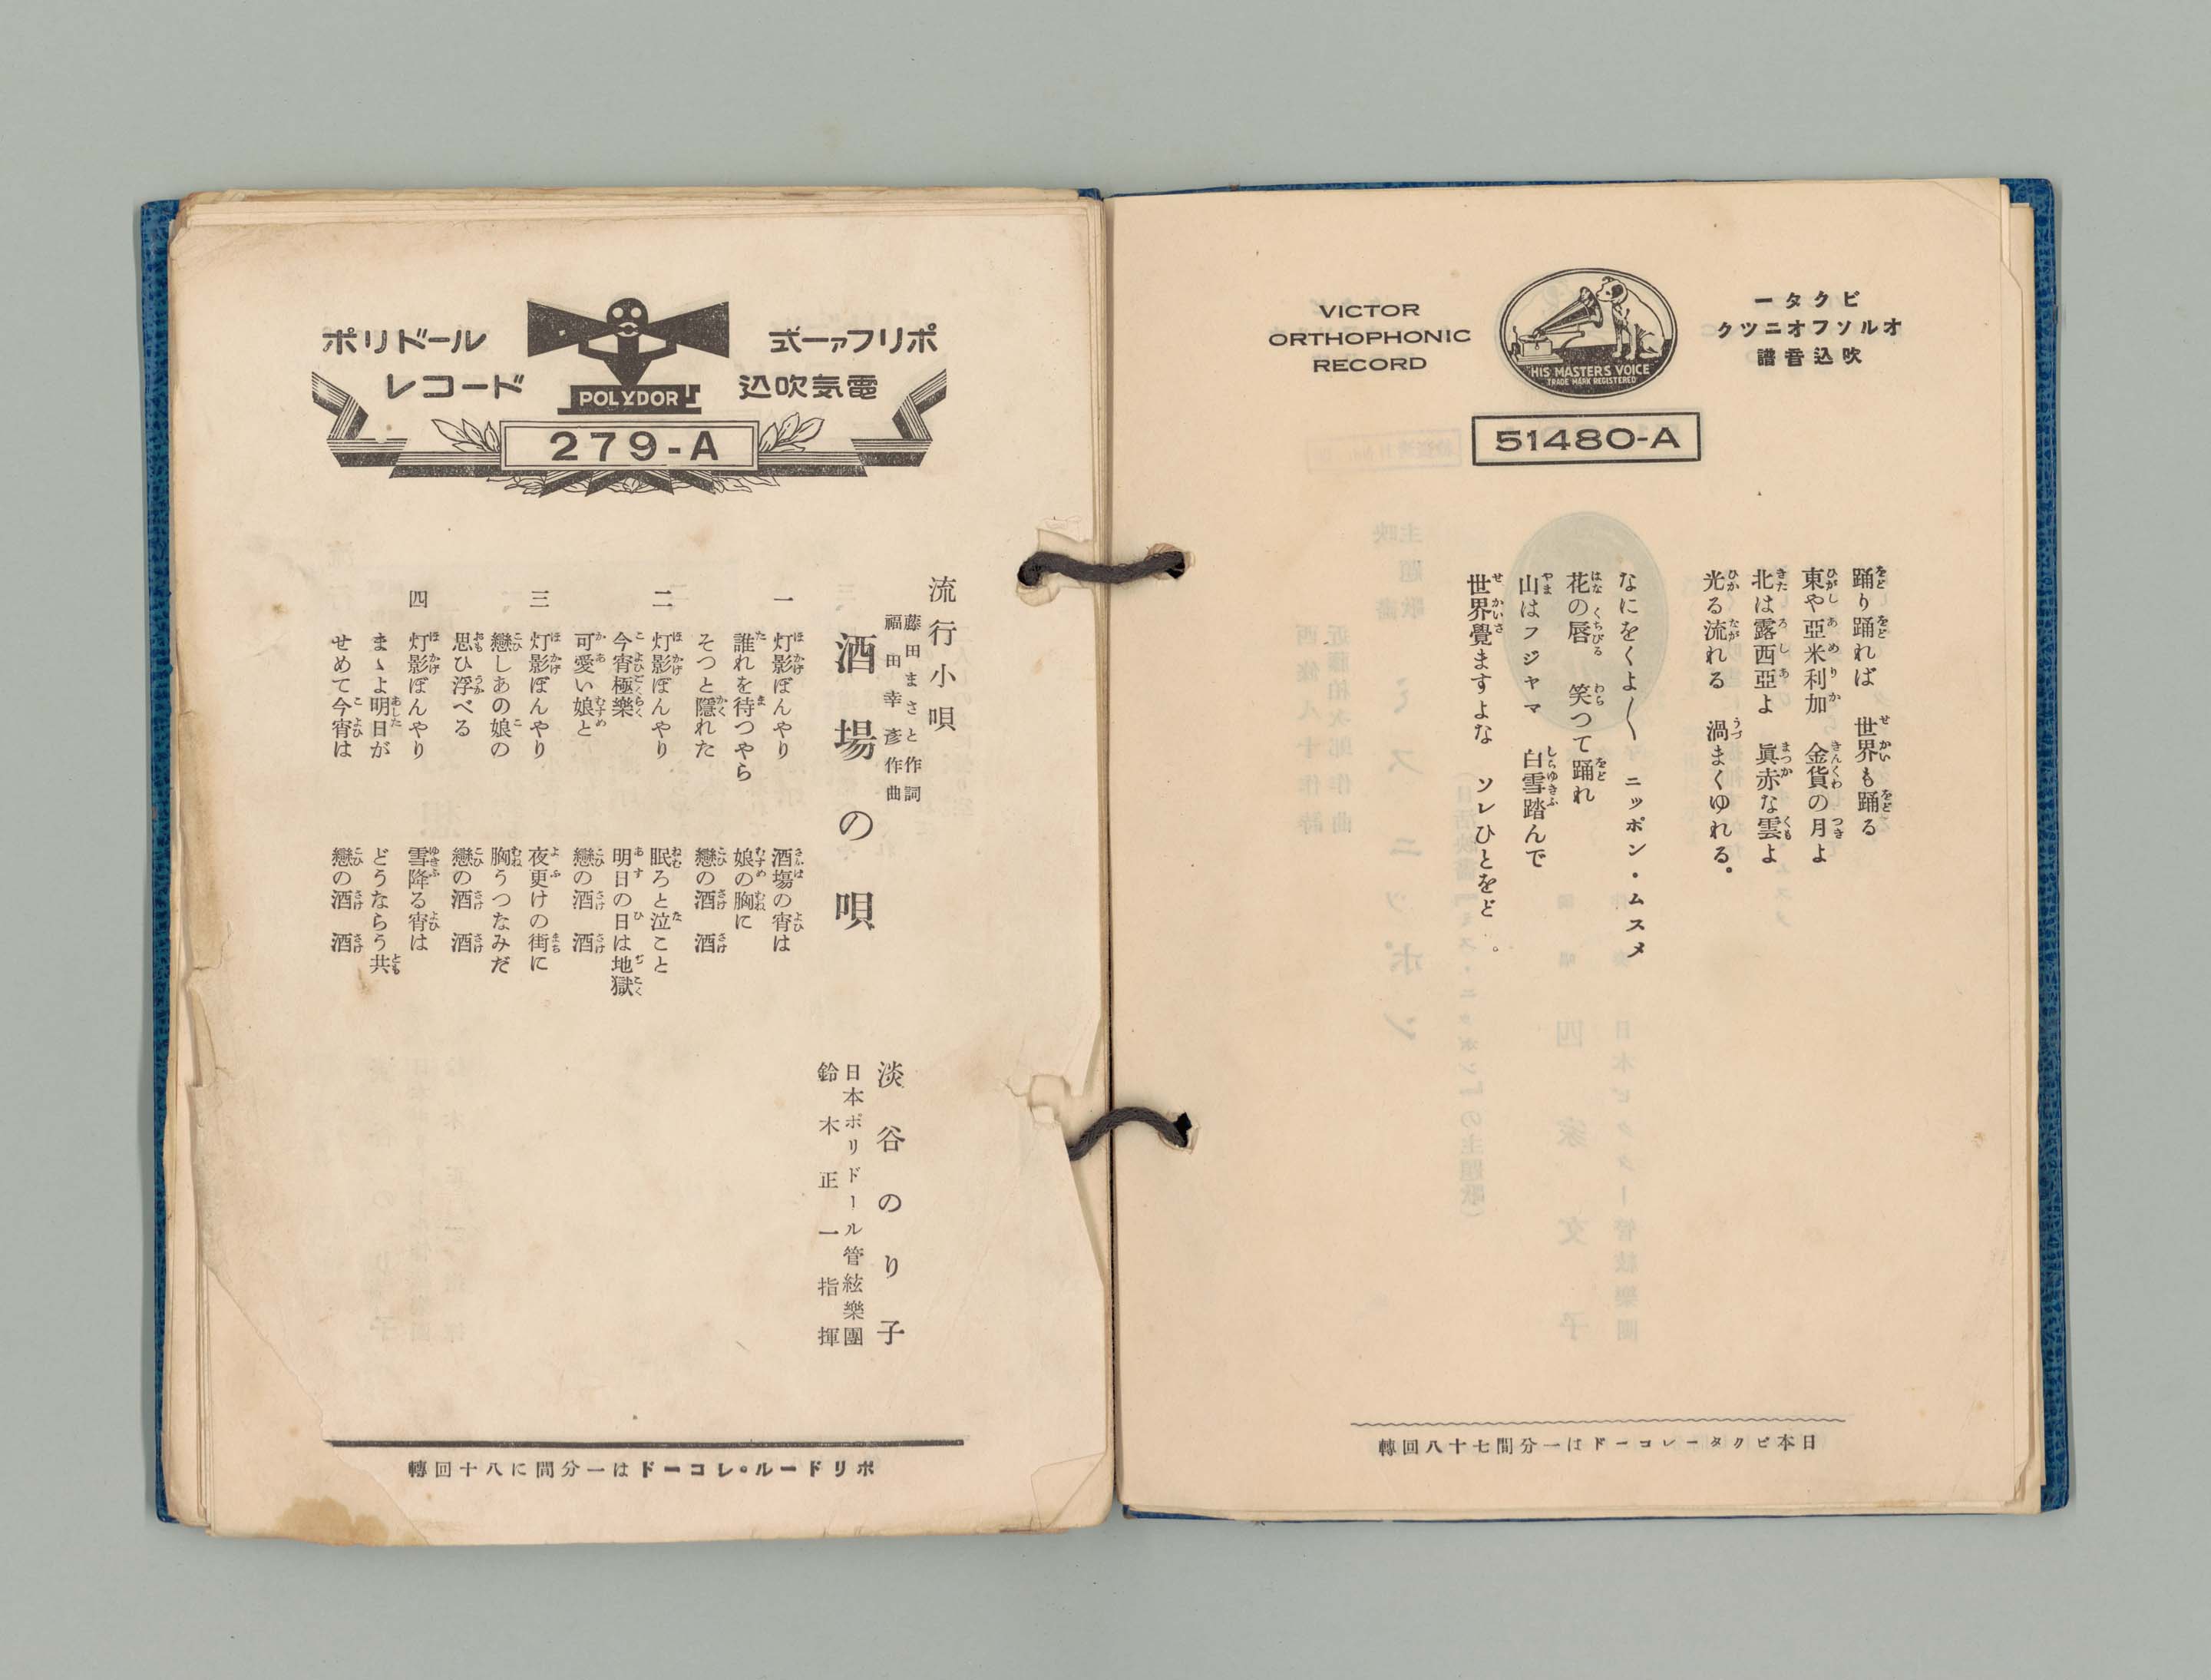 ビクター
オルソフオニツク
吹込音譜
HIS MASTERS VOICE
TRADE MARK REGISTERED
VICTOR
ORTHOPHONIC
RECORD
51480-A
踊り踊れば 世界も踊る
東や亞米利加 金貨の月よ
北は露西亞よ 眞赤な雲よ
光る流れる 渦まくゆれる。
なにをくよ〱 ニッポン・ムスメ
花の唇 笑つて踊れ
山はフジヤマ 白雪踏んで
世界覺ますよな ソレひとをど 。
日本ビクターレコードは一分間七十八回轉
ポリファー式
電気吹込
POLYDOR
ポリドール
レコード
279-A
流行小唄
藤田まさと作詞
福田幸彦作曲
酒場の唄
淡谷のり子
日本ポリドール管絃樂團
鈴木正一指揮
一
灯影ぼんやり 酒場の宵は
誰れを待つやら 娘の胸に
そつと隱れた 戀の酒 酒
二
灯影ぼんやり 眠ろと泣こと
今宵極樂 明日の日は地獄
可愛い娘と 戀の酒 酒
三
灯影ぼんやり 夜更けの街に
戀しあの娘の 胸うつなみだ
思ひ浮べる 戀の酒 酒
四
灯影ぼんやり 雪降る宵は
まゝよ明日が どうならう共
せめて今宵は 戀の酒 酒
ポリドール・レコードは一分間に八十回轉